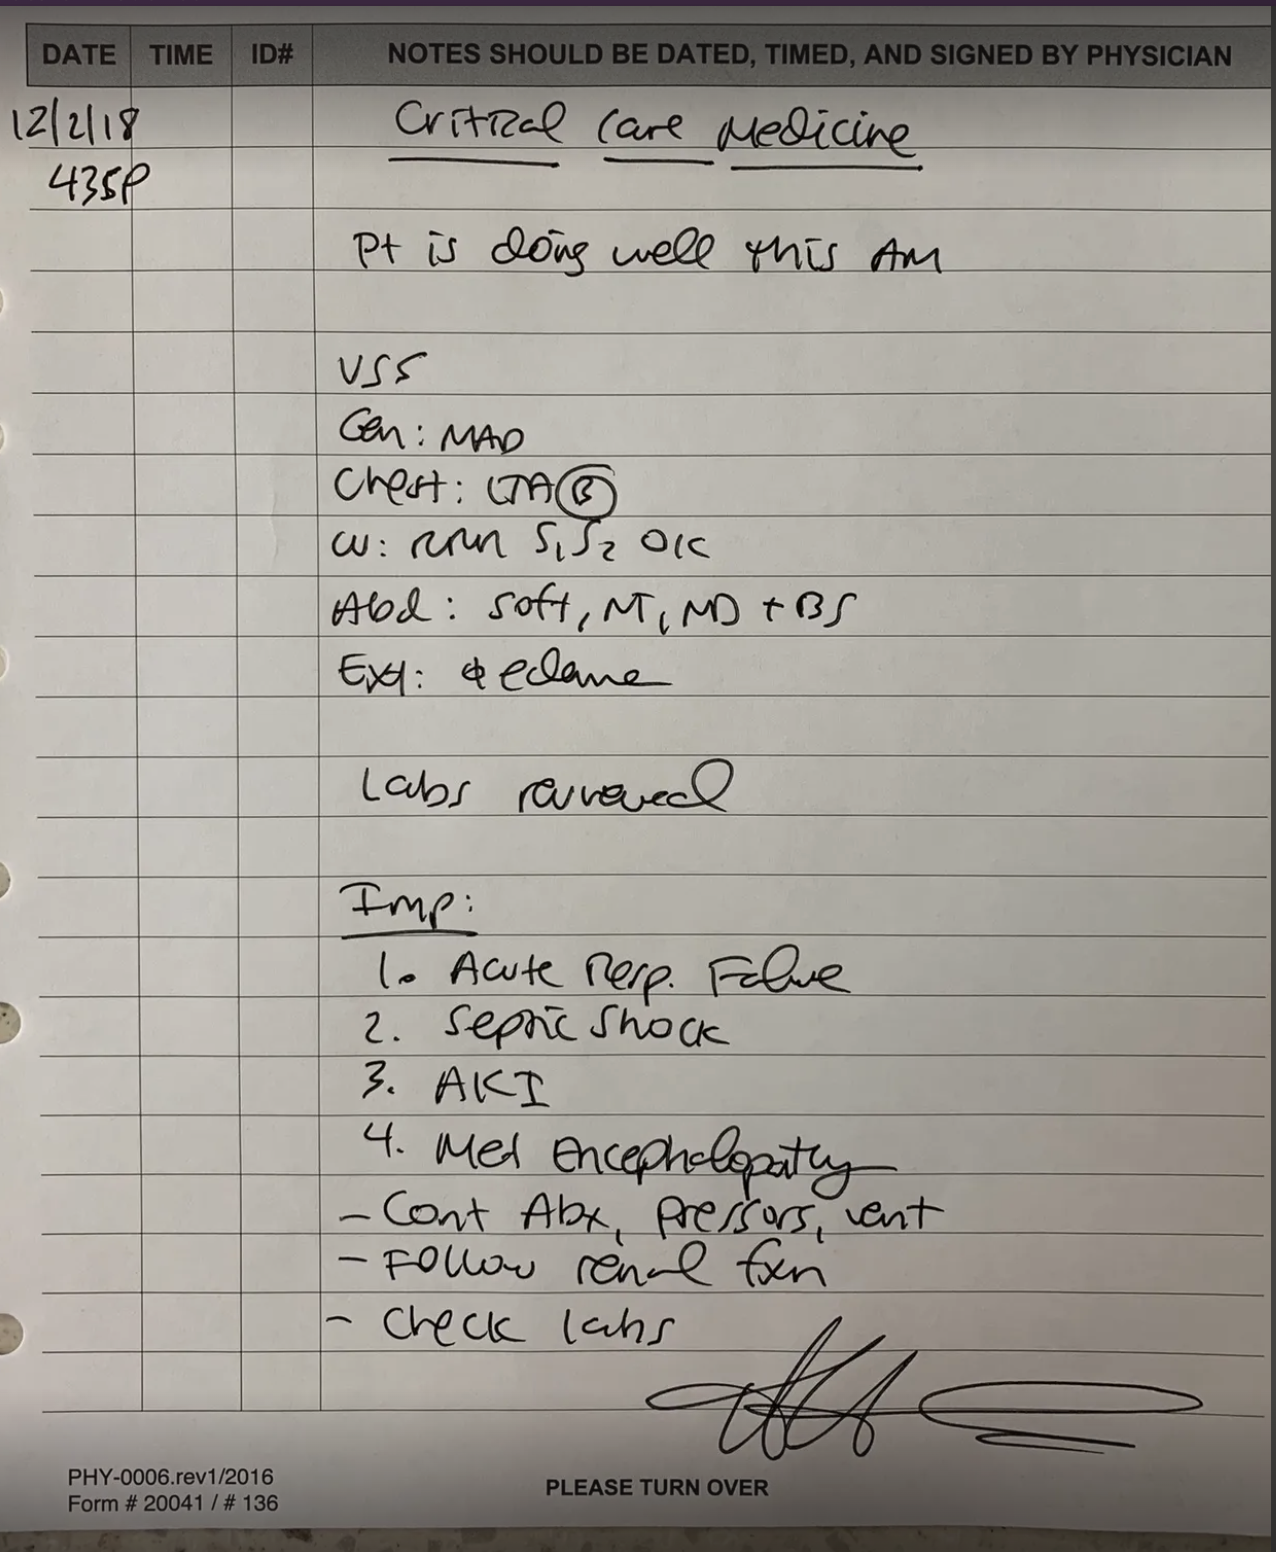 DATE TIME ID# NOTES SHOULD BE DATED, TIMED, AND SIGNED BY PHYSICIAN
12/2/18 Critical Care Medicine
435P
Pt is doing well this AM
VSS
Gen: NAD
Chest: CTA Ⓑ
CV: RRR S₁S₂ OK
Abd: soft, NT, ND + BS
Ext: φ edema
Labs reviewed
Imp:
1. Acute Resp. Failure
2. Septic Shock
3. AKI
4. Met Encephalopathy
- Cont Abx, pressors, vent
- Follow renal fxn
- Check labs
PHY-0006.rev1/2016
Form # 20041 / # 136
PLEASE TURN OVER